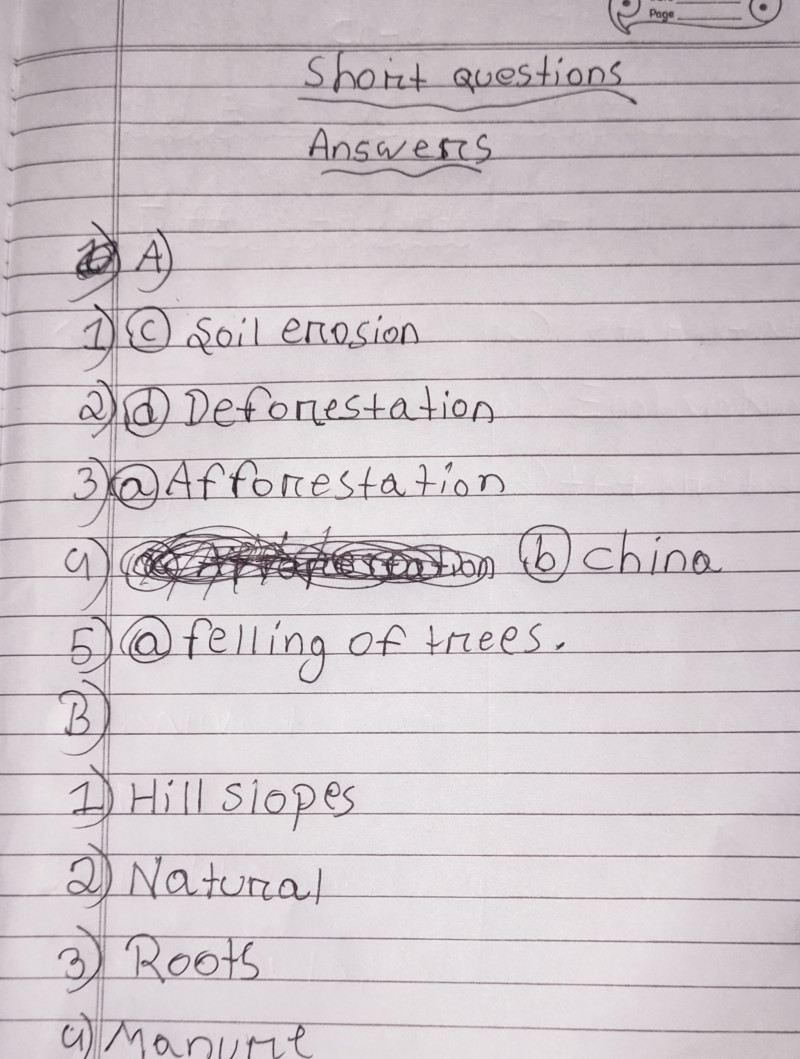 Page
Short questions
Answers
A)
1) (c) Soil erosion
2) (d) Deforestation
3) (a) Afforestation
4) (b) china
5) (a) felling of trees.
B)
1) Hill slopes
2) Natural
3) Roots
4) Manure